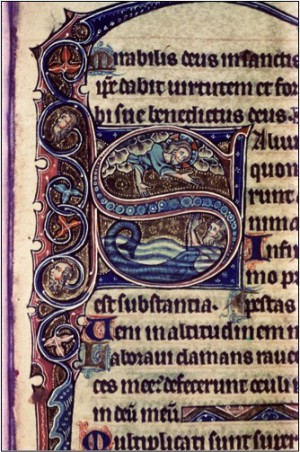 Mirabilis deus in sanctis
ip̄e dabit uirtutem et for
bi sue benedictus deus.
Saluu
quon
runt
nima
Infi
mo p
est substantia. Tēpestas
Ueni in altitudinem m
Laboraui clamans rauc
ces mee: defecerunt oculi
in deū meū
Multiplicati sunt super